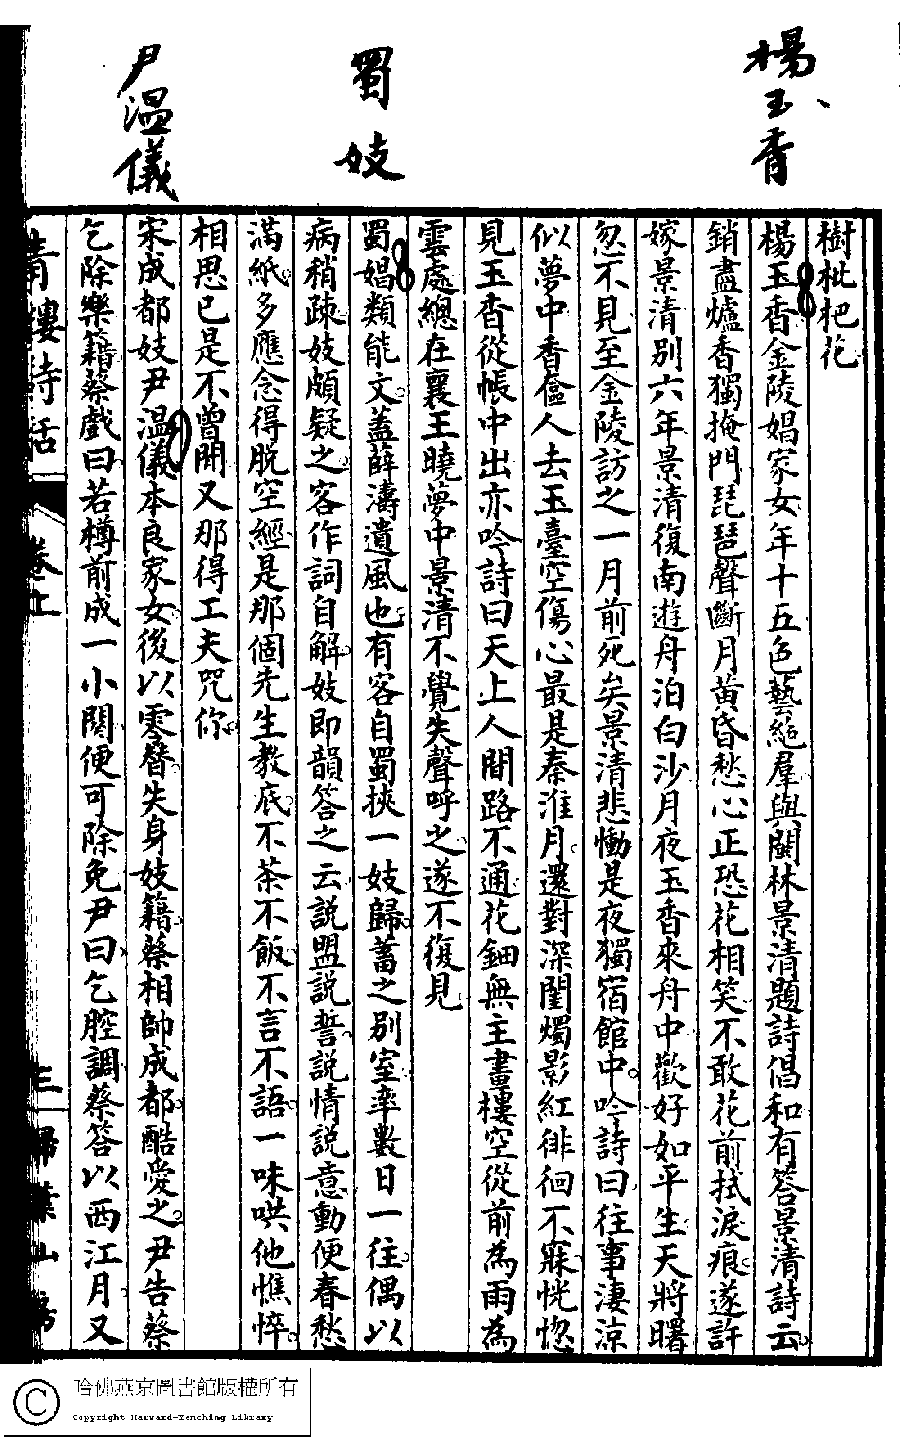 楊玉香
蜀妓
尹温儀
樹枇杷花
楊玉香金陵娼家女年十五色藝絶羣與閩林景清題詩倡和有答景清詩云
銷盡爐香獨掩門琵琶聲斷月黄昏愁心正恐花相笑不敢花前拭淚痕遂許
嫁景清别六年景清復南遊舟泊白沙月夜玉香來舟中歡好如平生天將曙
忽不見至金陵訪之一月前死矣景清悲慟是夜獨宿館中吟詩曰往事淒涼
似夢中香奩人去玉臺空傷心最是秦淮月還對深閨燭影紅徘徊不寐恍惚
見玉香從帳中出亦吟詩曰天上人間路不通花鈿無主畫樓空從前為雨為
雲處總在襄王曉夢中景清不覺失聲呼之遂不復見
蜀娼類能文蓋薛濤遺風也有客自蜀挾一妓歸蓄之别室率數日一往偶以
病稍疎妓頗疑之客作詞自解妓即韻答之云說盟說誓說情說意動便春愁
滿紙多應念得脱空經是那個先生教底不茶不飯不言不語一味哄他憔悴
相思已是不曾閒又那得工夫咒你
宋成都妓尹温儀本良家女後以零替失身妓籍蔡相帥成都酷愛之尹告蔡
乞除樂籍蔡戲曰若樽前成一小闋便可除免尹曰乞腔調蔡答以西江月又
青樓詩話
卷上
三
掃葉山房
哈佛燕京圖書館版權所有
Copyright Harvard-Yenching Library